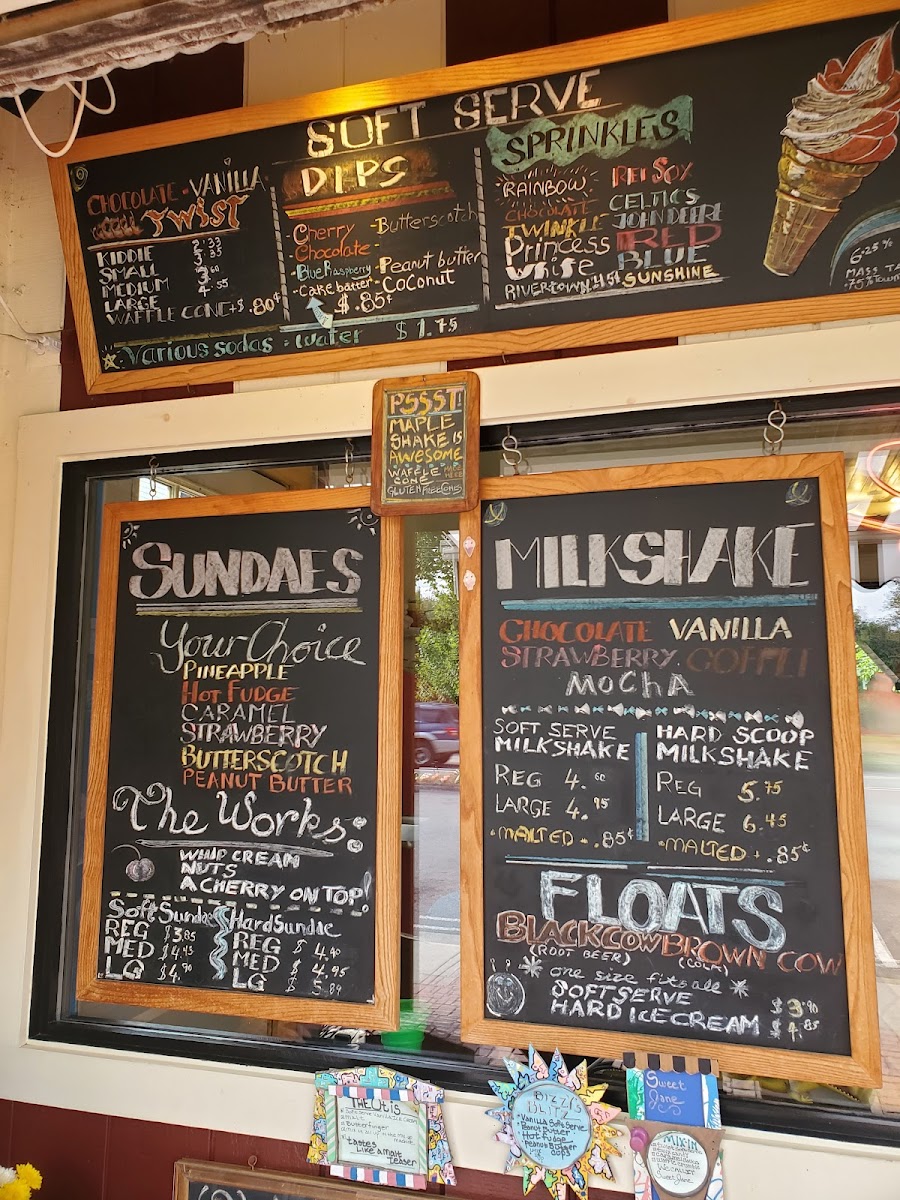 SOFT SERVE
CHOCOLATE - VANILLA
TWIST
KIDDIE
SMALL
MEDIUM
LARGE 4.55
WAFFLE CONE +$ .80¢
DIPS
-Cherry -Butterscotch
-Chocolate-
-Blue Raspberry -Peanut butter
-Cake batter -Coconut
$.85¢
SPRINKLES
RAINBOW
CHOCOLATE
TWINKLE
Princess
White
RIVERTOWN MIST
RED SOX
CELTICS
JOHN DEERE
RED
BLUE
SUNSHINE
6.25%
MASS TA
.75% Town
Various sodas - water $1.75
PSSST!
MAPLE
SHAKE IS
AWESOME
WAFFLE
CONE
GLUTEN FREE CONES
SUNDAES
Your Choice
PINEAPPLE
HOT FUDGE
CARAMEL
STRAWBERRY
BUTTERSCOTCH
PEANUT BUTTER
The Works:
WHIP CREAM
NUTS
A CHERRY ON TOP!
Soft Sundae
REG $3.85
MED $4.45
LG $4.90
Hard Sundae
REG $4.40
MED $4.95
LG $5.89
MILKSHAKE
CHOCOLATE VANILLA
STRAWBERRY COFFEE
MOCHA
SOFT SERVE
MILKSHAKE
REG 4.60
LARGE 4.95
•MALTED + .85¢
HARD SCOOP
MILKSHAKE
REG 5.75
LARGE 6.45
•MALTED + .85¢
FLOATS
BLACK COW BROWN COW
(ROOT BEER) (COLA)
one size fits all
SOFT SERVE $3.90
HARD ICE CREAM $4.85
THE OtIS
Butterfinger
tastes
Like a Malt
Teaser
BIZZY'S
BLITZ
Vanilla Soft Serve
Peanut Butter
Hot fudge
Peanut Butter
Cups
Sweet
Jane
MIX IN